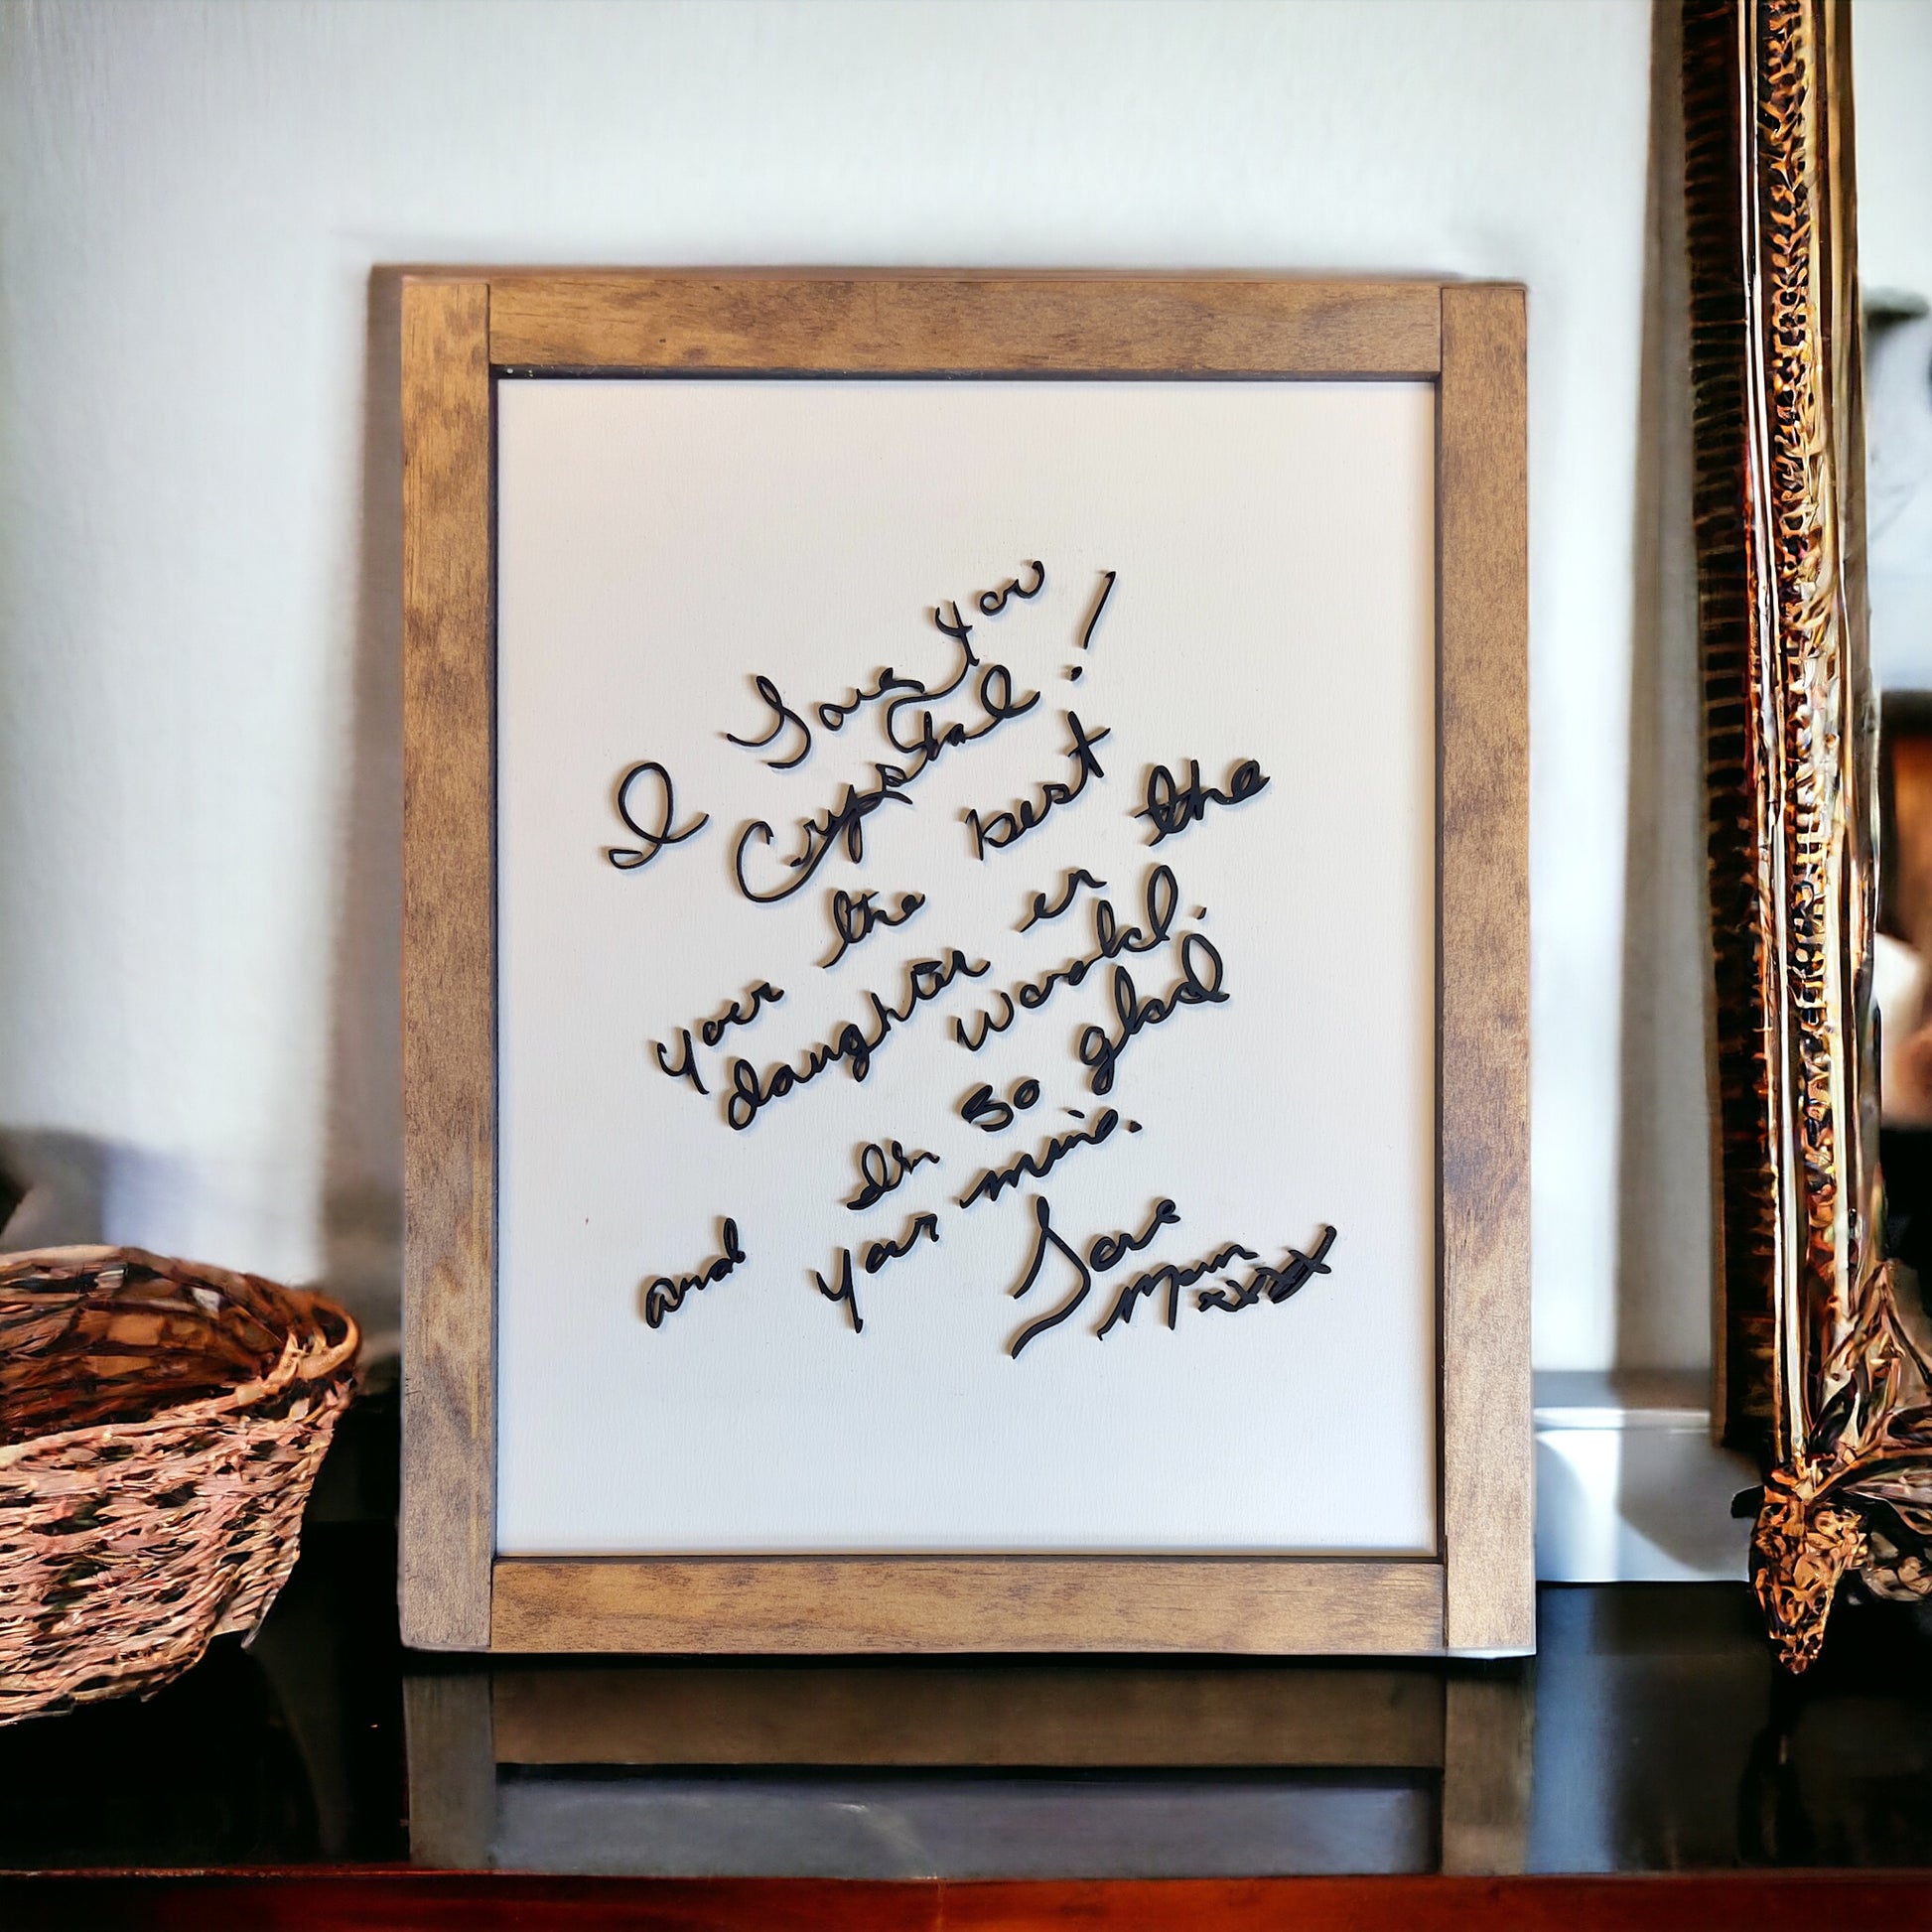 I Love You
Crystal!
your the best
daughter in the
world.
and Im so glad
your mine.
Love
Mom